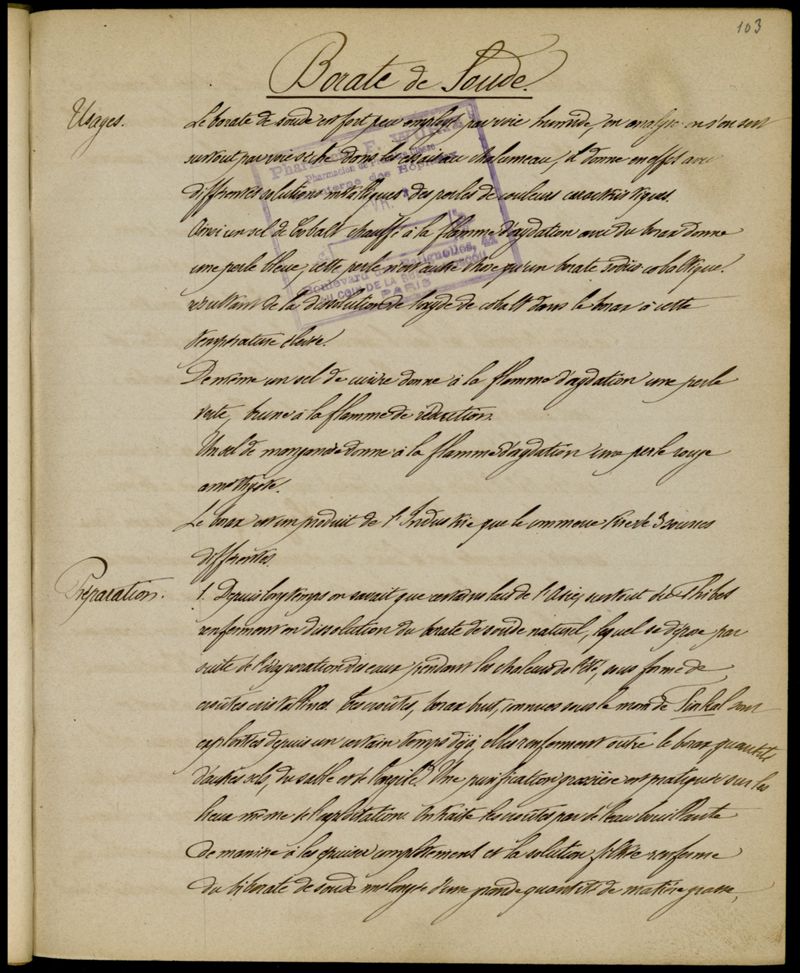 103
Borate de Soude.
Usages.
Le borate de soude est fort peu employé par voie humide, en analyse on s'en sert
surtout par voie sèche dans les essais au chalumeau, il donne en effet avec
différentes solutions métalliques des perles de couleurs caractéristiques.
Ainsi un sel de Cobalt chauffé à la flamme d'oxydation avec du borax donne
une perle bleue; cette perle n'est autre chose qu'un borate cobaltique
résultant de la dissolution de l'oxyde de cobalt dans le borax à cette
température élevée.
De même un sel de cuivre donne à la flamme d'oxydation une perle
verte, brune à la flamme de réduction.
Un sel de manganèse donne à la flamme d'oxydation une perle rouge
améthyste.
Le borax est un produit de l'Industrie que le commerce tire de 3 sources
différentes.
Préparation.
1. Depuis longtemps on savait que certains lacs de l'Asie, surtout du Thibet
renferment en dissolution du borate de soude naturel, lequel se dépose par
suite de l'évaporation des eaux pendant les chaleurs de l'Eté, sous forme de
croûtes cristallines. Ces croûtes, borax brut, connues sous le nom de Tinkal sont
exploitées depuis un certain temps déjà, elles renferment outre le borax quantité
d'autres sels, du sable et de l'argile. Une purification grossière est pratiquée sur les
lieux même de l'exploitation. On traite les croûtes par de l'eau bouillante
de manière à les épuiser complètement et la solution filtrée renferme
du biborate de soude mélangé d'une grande quantité de matière grasse,
Pharmacie F.
Pharmacien de
Interne des Hôpitaux
Boulevard des Batignolles, 44
AU COIN DE LA RUE
PARIS